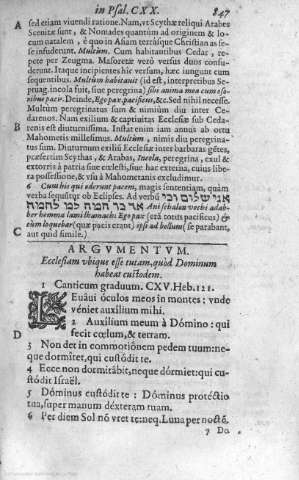 in Psal. CXX. 847
A sed etiam viuendi ratione. Nam, vt Scythæ reliqui Arabes
Scenitæ sunt, & Nomades quantum ad originem & lo-
cum natalem, è quo in Asiam terrásque Christianas se-
se infuderunt. Multùm. Cum habitantibus Cedar, re-
pete per Zeugma. Masoretæ verò versus duos confu-
derunt. Itaque incipientes hic versum, hæc iungunt cum
sequentibus. Multùm habitauit (id est, interpretibus Se-
ptuag. incola fuit, siue peregrina) sibi anima mea cum eo-
B sibus pace. Deinde, Ego pax pacificus, &c. Sed nihil necesse.
Multùm peregrinatus sum & nimiùm diu inter Ce-
darenos. Nam exilium & captiuitas Ecclesiæ sub Ced-
renis est diuturnissima. Instat enim iam annus ab ortu
Mahometis millesimus. Multùm, nimis diu peregrina-
tus sum. Diuturnum exiliū Ecclesiæ inter barbaras gētes,
præsertim Scythas, & Arabas, Incola, peregrina, exul &
extorris à patria siue ecclesiæ, siue hac externa, cuius libe-
ra possessione, & vsu à Mahometanis excludimur.
6 Cum his qui oderunt pacem, magis sententiam, quàm
verba sequūtur ob Eclipses. Ad verbū אני שלום וכי
אדבר המה למלחמה Ani schalum vechi adab-
ber hemma lammilchamah; Ego pax (erā totus pacificus) &
cum loquebar (quæ pacis erant) ipsi ad bellum (se parabant,
C aut quid simile.)
ARGVMENTVM.
Ecclesiam vbique esse tutam, quòd Dominum
habeat custodem.
1 Canticum graduum. CXV. Heb. 121.
LEuáui óculos meos in montes: vnde
véniet auxilium mihi.
2 Auxilium meum à Dómino: qui
D fecit cœlum, & terram.
3 Non det in commotiónem pedem tuum: ne-
que dormítet, qui custódit te.
4 Ecce non dormitábit, neque dórmiet: qui cu-
stódit Israël.
5 Dóminus custódit te: Dóminus protéctio
tua, super manum déxteram tuam.
6 Per diem Sol nō vret te: neq. Luna per noctē.
7 Do-